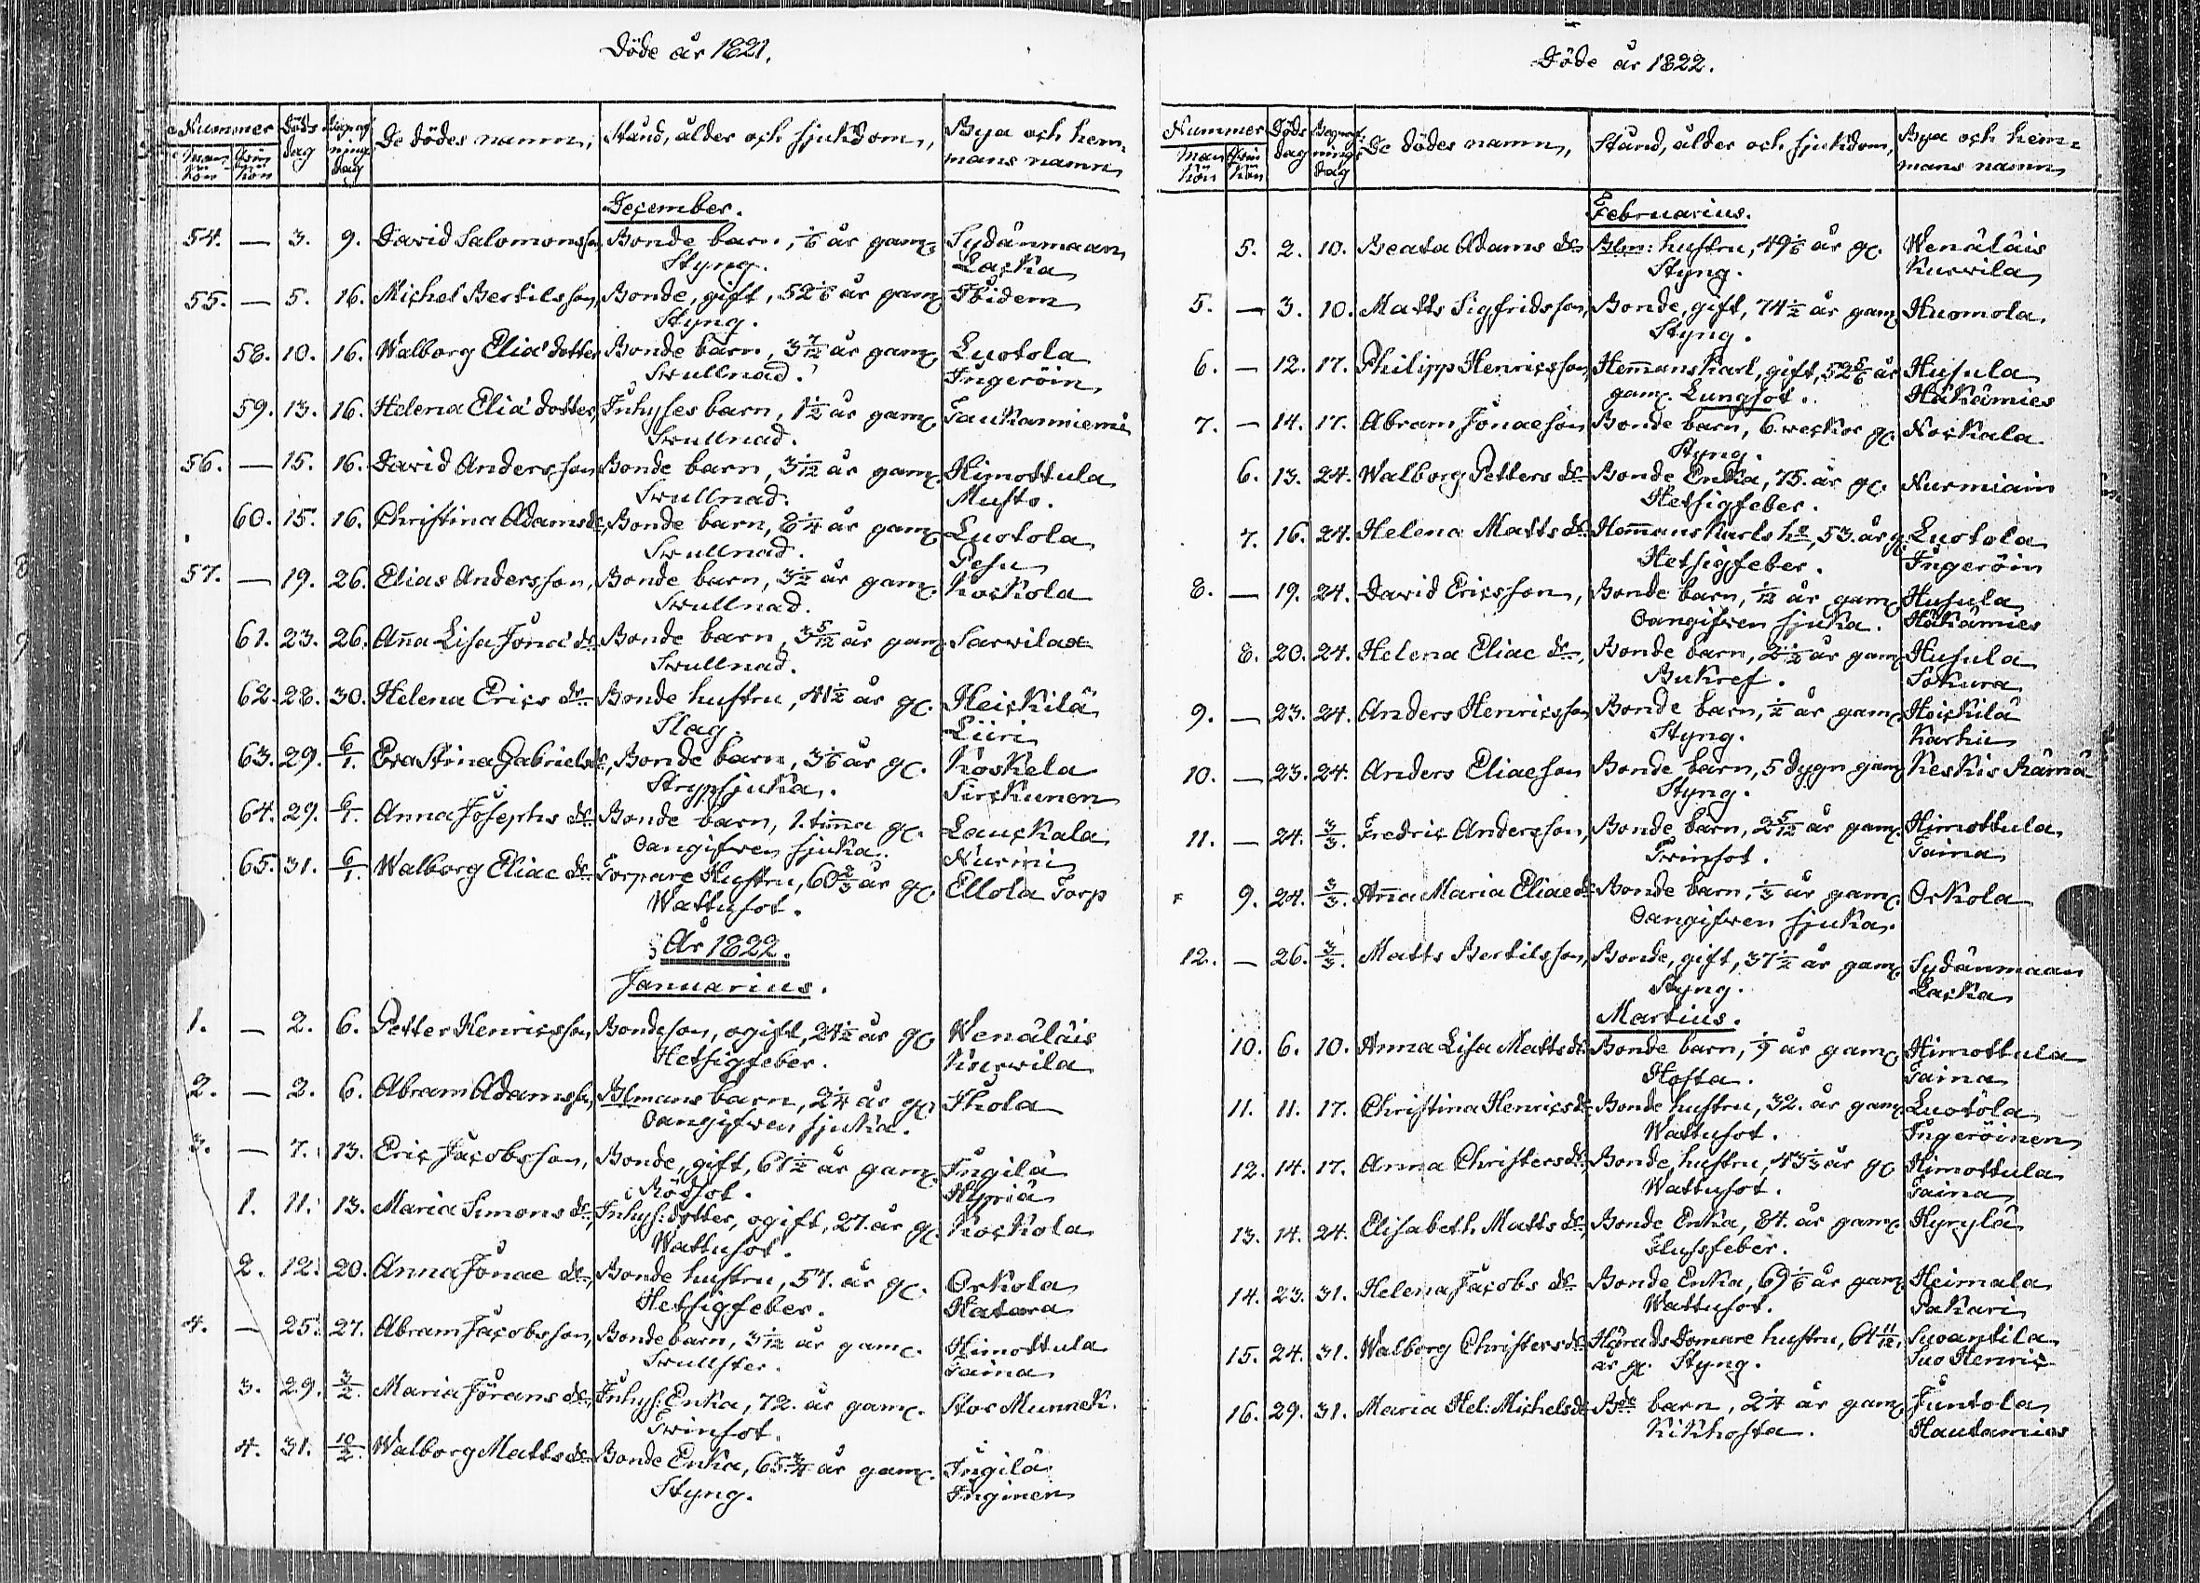 Döde år 1821.
Nummer Döds dag Begrafnings dag De dödes namn, Stånd, ålder och sjukdom, Bya och hem-
Man kön Qvin kön mans namn
December.
54. — 3. 9. David Salomonsson Bonde barn, 1/6 år gam. Sydänmaan
Styng. Lacka
55. — 5. 16. Michel Bertilsson, Bonde, gift, 52 1/6 år gam. Ibidem
Styng.
58. 10. 16. Walborg Eliæ dotter Bonde barn, 3 7/12 år gam. Luotola
Swullnad. Ingeröin
59. 13. 16. Helena Eliæ dotter, Inhyses barn, 1 1/2 år gam. Taukanniemi
Swullnad.
56. — 15. 16. David Andersson Bonde barn, 3 1/12 år gam. Himottula
Swullnad. Musto.
60. 15. 16. Christina Adams dr, Bonde barn, 2 1/4 år gam. Luotola
Swullnad. Pesu
57. — 19. 26. Elias Andersson, Bonde barn, 3 1/2 år gam. Kockola
Swullnad.
61. 23. 26. Aña Lisa Jonæ dr Bonde barn, 3 5/12 år gam. Sarvila
Swullnad.
62. 28. 30. Helena Erics dr Bonde hustru, 41 1/2 år g. Heickilä
Slag. Liiri
63. 29. 6/1. Eva Stina Gabriels dr, Bonde barn, 3 1/6 år g. Koskela
Strypsjuka. Sirckunen
64. 29. 6/1. Anna Josephs dr Bonde barn, 1. tima g. Lauckala
Oangifven sjuka. Nurmi
65. 31. 6/1. Walborg Eliæ dr Torpare Hustru, 60 2/3 år g. Ellola Torp
Wattusot.
År 1822.
Januarius.
1. — 2. 6. Petter Henricsson, Bondeson, ogift, 24 1/2 år g. Wenäläis
Hetsigfeber. Kurvila
2. — 2. 6. Abram Adamsson, Blmans barn, 2 1/4 år g. Ihola
Oangifven sjuka.
3. — 7. 13. Eric Jacobsson, Bonde, gift, 61 1/2 år gam. Ingilä
Rödsot. Hypiä
1. 11. 13. Maria Simons dr, Inhys: dotter, ogift, 27. år g. Kockola
Wattusot.
2. 12. 20. Anna Jonae dr, Bonde hustru, 57. år g. Orkola
Hetsigfeber. Hatara
4. — 25. 27. Abram Jacobsson, Bonde barn, 3 1/12 år gam. Himottula
Swulster. Taina
3. 29. 3/2. Maria Jörans dr, Inhys: Enka, 72. år gam. Stor Munnek.
Twinsot.
4. 31. 10/2. Walborg Matts dr Bonde Enka, 65 3/4 år gam. Ingilä
Styng. Inginen
Döde år 1822.
Nummer Döds dag Begrafnings dag De dödes namn, Stånd, ålder och sjukdom, Bya och hem-
Man kön Qvin kön mans namn
Februarius.
5. 2. 10. Beata Adams dr Blm: hustru, 49 1/6 år g. Wenäläis
Styng. Kurvila
5. — 3. 10. Matts Sigfridsson, Bonde, gift, 74 1/2 år gam. Huomola
Styng.
6. — 12. 17. Philipp Henricsson, Hemans Karl, gift, 52 5/6 år Husula
gam. Lungsot. Häkämies
7. — 14. 17. Abram Jonaeson Bonde barn, 6. weckor g. Nockala
Styng.
6. 13. 24. Walborg Petters dr Bonde Enka, 75. år g. Nurmiain
Hetsigfeber.
7. 16. 24. Helena Matts dr Hemans Karls hu, 53. år g. Luotola
Hetsigfeber. Ingeröin
8. — 19. 24. David Ericsson, Bonde barn, 1/12 år gam. Husula
Oangifven sjuka. Häkämies
8. 20. 24. Helena Eliae dr, Bonde barn, 2 1/2 år gam. Husula
Bukref. Sokura
9. — 23. 24. Anders Henricsson Bonde barn, 1/2 år gam. Heickilä
Styng. Karhu
10. — 23. 24. Anders Eliaeson Bonde barn, 5 dygn gam. Keskis Rämä
Styng.
11. — 24. 3/3. Fredric Andersson, Bonde barn, 2 5/12 år gam. Himottula
Twinsot. Taina
9. 24. 3/3. Aña Maria Eliae dr Bonde barn, 1/3 år gam. Orkola
Oangifven sjuka.
12. — 26. 3/3. Matts Bertilsson, Bonde, gift, 37 1/2 år gam. Sydänmaan
Styng. Lacka
Martius.
10. 6. 10. Anna Lisa Matts dr Bonde barn, 1/9 år gam. Himottula
Hosta. Taina
11. 11. 17. Christina Henrics dr Bonde hustru, 32. år gam. Luotola
Wattusot. Ingeröinen
12. 14. 17. Anna Christers dr Bonde hustru, 43 1/3 år g. Himottula
Wattusot. Taina
13. 14. 24. Elisabeth Matts dr Bonde Enka, 84. år gam. Hyrylä
Flussfeber.
14. 23. 31. Helena Jacobs dr Bonde Enka, 69 1/6 år gam. Heimala
Wattusot. Pakari
15. 24. 31. Walborg Christers dr Härads Domare hustru, 61 11/12 Suoantila
år g. Styng. Suo Henric
16. 29. 31. Maria Hel: Michels dr Bde barn, 2 1/4 år gam. Juntola
Kikhosta. Hautamies